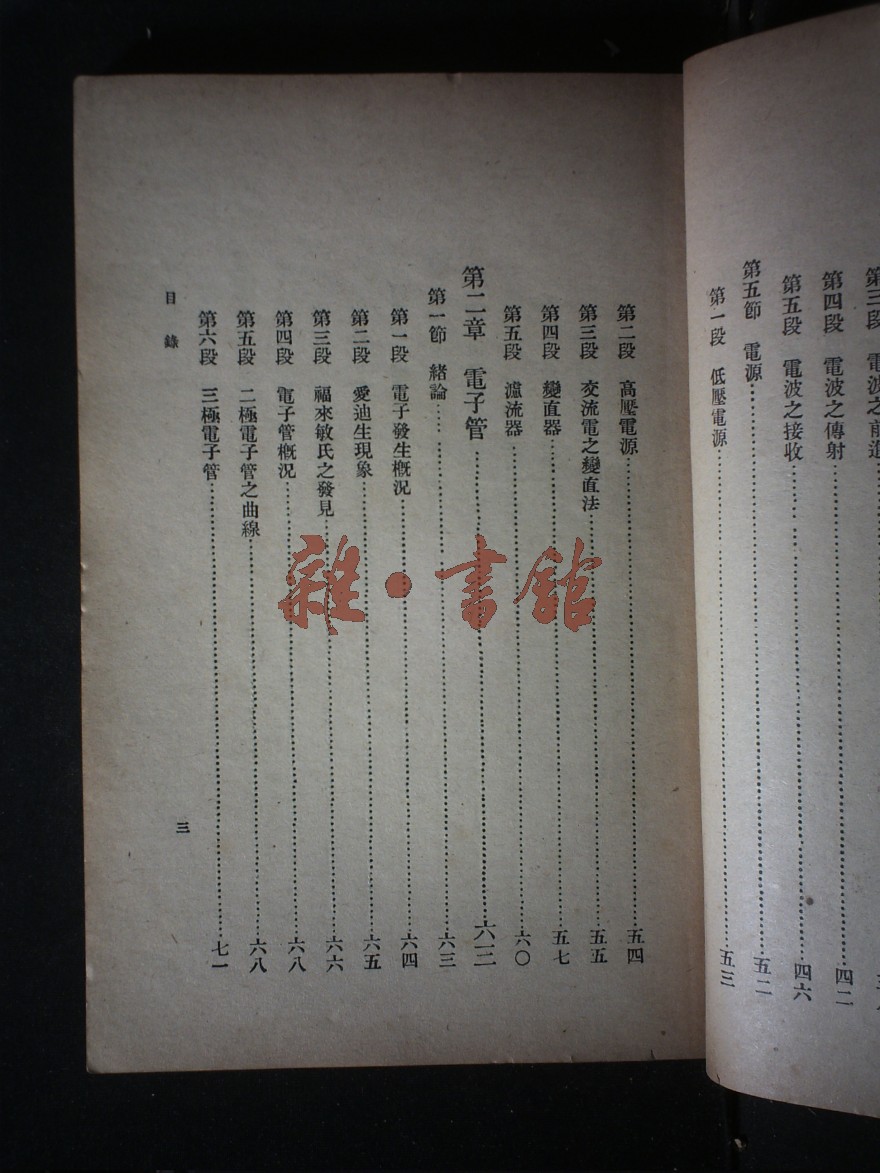 第四段　電波之傳射……四二
第五段　電波之接收……四六
第五節　電源……五二
第一段　低壓電源……五三
第二段　高壓電源……五四
第三段　交流電之變直法……五五
第四段　變直器……五七
第五段　濾流器……六〇
第二章　電子管……六三
第一節　緒論……六三
第一段　電子發生概況……六四
第二段　愛迪生現象……六五
第三段　福來敏氏之發見……六六
第四段　電子管概況……六八
第五段　二極電子管之曲線……六八
第六段　三極電子管……七一
目錄
三
雜·書館